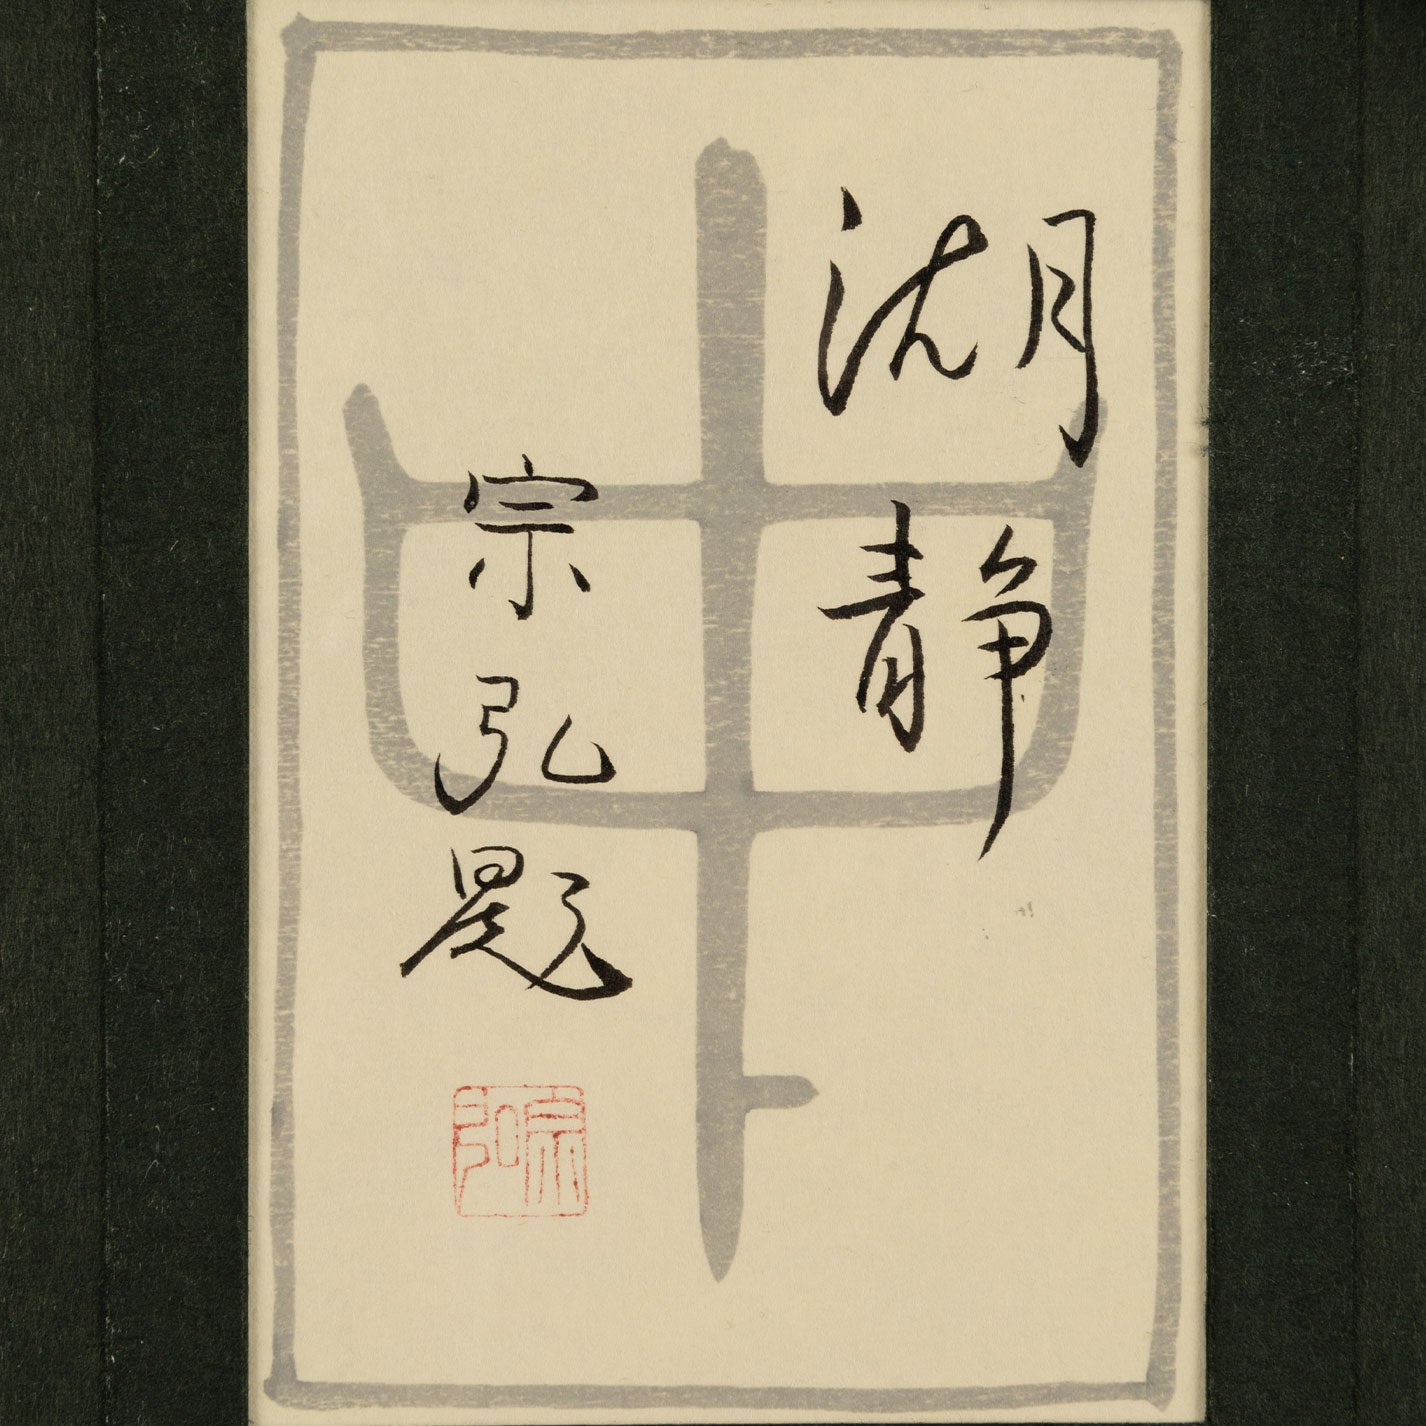 湖静
宗弘題
宗弘